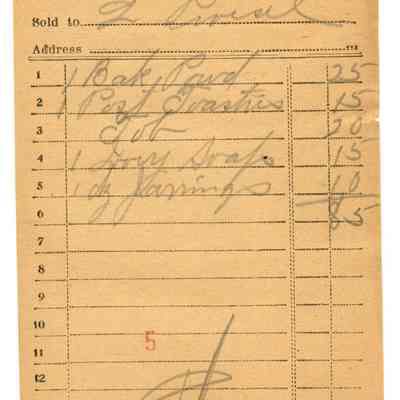 Sold to
Address
1 1 Bak Powd 25
2 1 Post Toasties 15
3 Tob 20
4 1 Ivory Soap 15
5 1 dz Jar rings 10
6 85
7
8
9
10
5
11
12